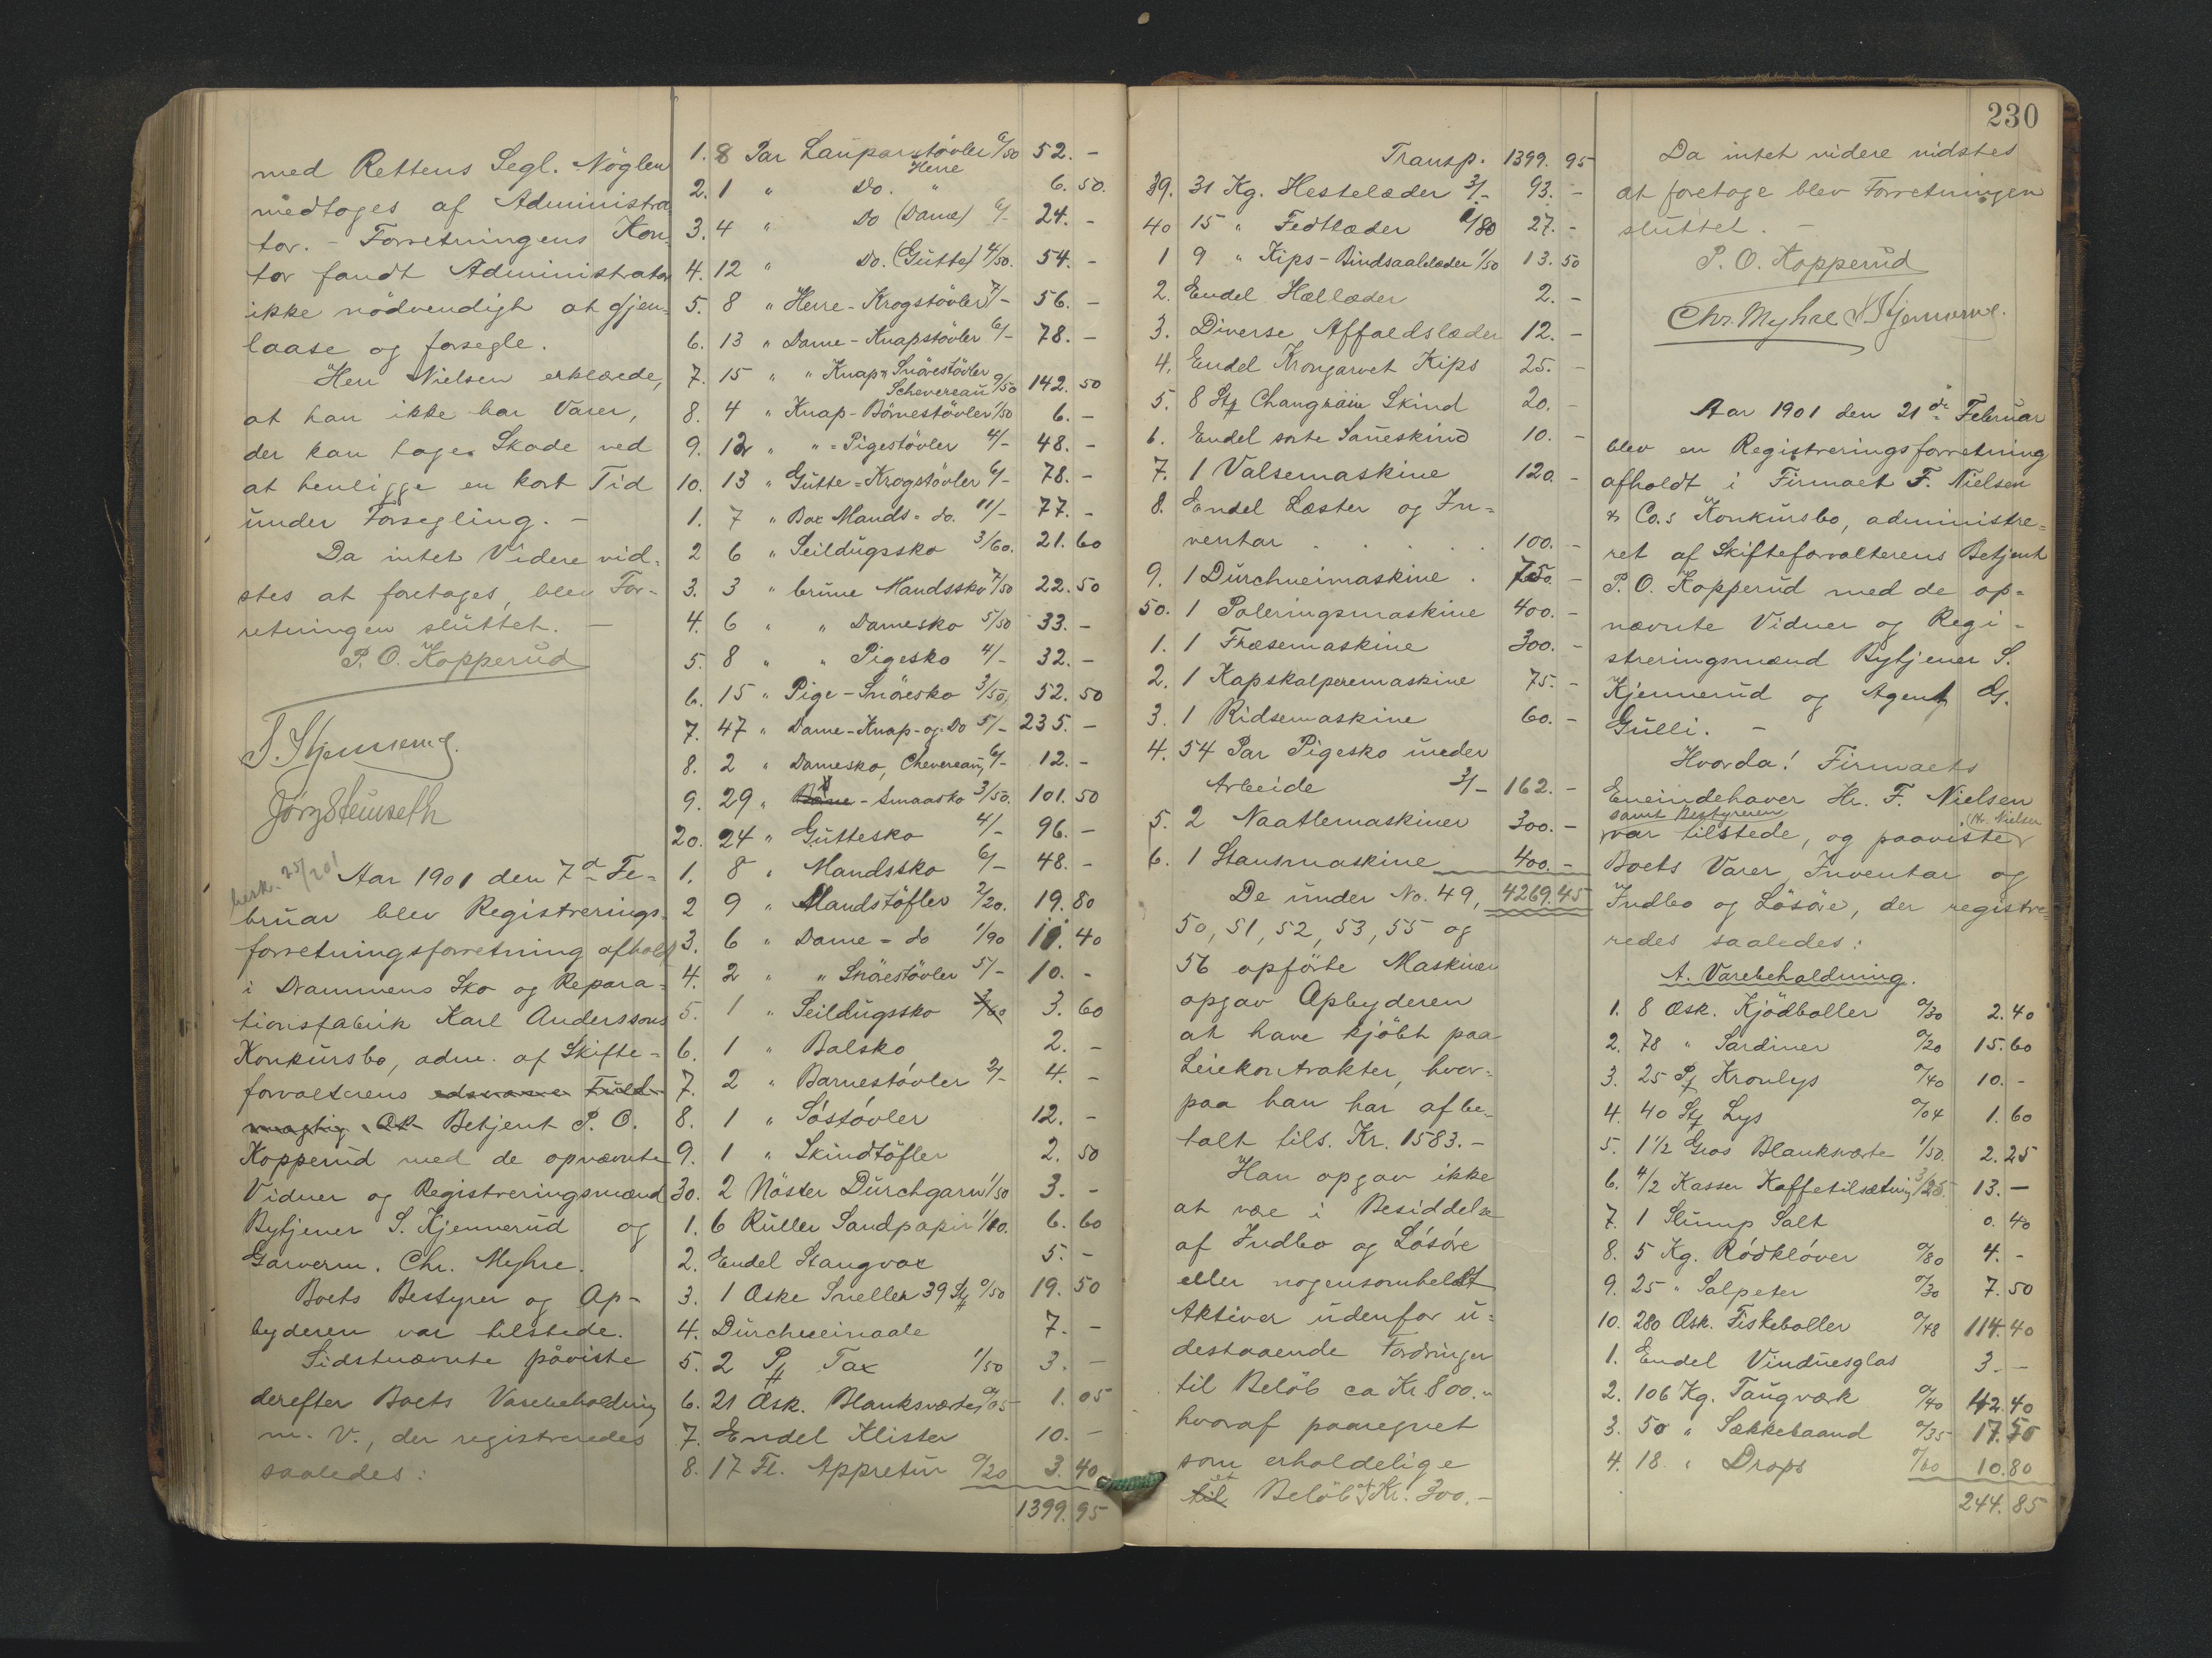 med Rettens Segl. Nöglen
medtoges af Administra
tor. - Forretningens Kon-
tor fandt Administrator
ikke nödvendigt at gjen-
laase og forsegle.
Herr Nielsen erklærede,
at han ikke har Varer,
der kan tage Skade ved
at henligge en kort Tid
under Forsegling. -
Da intet Videre vid-
stes at foretages, blev For-
retningen sluttet. -
P. O. Kopperud
S. Kjennerud
Jörg Steinseth
besk. 25/2 01
Aar 1901 den 7de Fe-
bruar blev Registrerings-
forretningsforretning afholdt
i Drammens Sko og Repara-
tionsfabrik Karl Anderssons
Konkursbo, adm. af Skifte-
forvalterens edsvorne Fuld-
mægtig Betjent P. O.
Kopperud med de opnævnte
Vidner og Registreringsmænd
Bytjener S. Kjennerud og
Garverm. Chr. Myhre.
Boets Bestyrer og Op-
byderen var tilstede.
Sidstnævnte påviste
derefter Boets Varebeholdning
m. V., der registreredes
saaledes:
1. 8 Par Lauparstövler 6/50 52. -
2. 1 " Do. Herre " 6. 50.
3. 4 " Do (Dame) 6/- 24. -
4. 12 " Do. (Gutte) 4/50. 54. -
5. 8 " Herre-Krogstövler 7/- 56. -
6. 13 " Dame-Knapstövler 6/- 78. -
7. 15 " " Knap " Snörestövler
Schevereau 9/50 142. 50
8. 4 " Knap-Börnestövler 1/50 6. -
9. 12 " " = Pigestövler 4/- 48. -
10. 13 " Gutte=Krogstövler 6/- 78. -
1. 7 " Box Mands= do. 11/- 77. -
2 6 " Seildugssko 3/60. 21. 60
3. 3 " brune Mandssko 7/50 22. 50
4. 6 " " Damesko 5/50 33. -
5. 8 " " Pigesko 4/- 32. -
6. 15 " Pige-Snöresko 3/50. 52. 50
7. 47 " Dame-Knap-og-Do 5/- 235. -
8. 2 " Damesko, Chevereau, 6/- 12. -
9. 29 " - Smaasko 3/50. 101. 50
20. 24 " Guttesko 4/- 96. -
1. 8 " Mandssko 6/- 48. -
2 9 " Mandstöfler 2/20. 19. 80
3. 6 " Dame = do 1/90 11. 40
4. 2 " " Snörestövler 5/- 10. -
5. 1 " Seildugssko 3/60 3. 60
6. 1 " Balsko 2. -
7. 2 " Barnestövler 2/- 4. -
8. 1 " Söstövler 12. -
9. 1 " Skindtöfler 2. 50
30. 2 Nöster Durchgarn 1/50 3. -
1. 6 Ruller Sandpapir 1/10. 6. 60
2. Endel Stangvox 5. -
3. 1 Æske Sneller 39 St 0/50 19. 50
4. Durchneinaale 7. -
5. 2 P Tax 1/50 3. -
6. 21 Æsk. Blanksværte 0/05 1. 05
7. Endel Klister 10. -
8. 17 Fl. Appretur 0/20 3. 40
1399. 95
230
Transp. 1399. 95
39. 31 Kg. Hestelæder 3/- 93. -
40 15 " Fedtlæder 1/80 27. -
1 9 " Kips-Bindsaalelæder 1/50 13. 50
2. Endel Hællæder 2. -
3. Diverse Affaldslæder 12. -
4. Endel Krongarvet Kips 25. -
5. 8 St Changrain Skind 20. -
6. Endel sorte Saueskind 10. -
7. 1 Valsemaskine 120. -
8. Endel Læster og In-
ventar . . . . . 100. -
9. 1 Durchneimaskine . 750. -
50. 1 Poleringsmaskine 400. -
1. 1 Fræsemaskine 300. -
2. 1 Kapskalperemaskine 75. -
3. 1 Ridsemaskine 60. -
4. 54 Par Pigesko under
Arbeide 3/- 162. -
5. 2 Naatlemaskiner 300. -
6. 1 Stansmaskine 400. -
De under No. 49, 4269.45
50, 51, 52, 53, 55 og
56 opförte Maskiner
opgav Opbyderen
at have kjöbt paa
Leiekontrakter, hvor-
paa han har afbe-
talt tils. Kr. 1583. -
Han opgav ikke
at være i Besiddelse
af Indbo og Lösöre
eller nogensomhelst
Aktiver udenfor u-
destaaende Fordringer
til Belöb ca Kr. 800. "
hvoraf paaregnet
som erholdelige
til et Belöb af Kr. 300. -
Da intet videre vidstes
at foretage blev Forretningen
sluttet. -
P. O. Kopperud
Chr. Myhre S. Kjennerud.
Aar 1901 den 21de Februar
blev en Registreringsforretning
afholdt i Firmaet F. Nielsen
& Co.s Konkursbo, administre-
ret af Skifteforvalterens Betjent
P. O. Kopperud med de op-
nævnte Vidner og Regi-
streringsmænd Bytjener S.
Kjennerud og Agent G.
Gulli. -
Hvorda! Firmaets
Eneindehaver Hr. F. Nielsen
samt Bestyreren, Hr. Nielsen
var tilstede, og paaviste
Boets Varer, Inventar og
Indbo og Lösöre, der registre-
redes saaledes:
A. Varebeholdning.
1. 8 Æsk. Kjödboller 0/30 2. 40
2. 78 " Sardiner 0/20 15. 60
3. 25 P Kronlys 0/40 10. -
4. 40 St Lys 0/04 1. 60
5. 1 1/2 Gros Blanksværte 1/50. 2. 25
6. 4/2 Kasser Kaffetilsætning 3/25. 13. -
7. 1 Slump Salt 0. 40
8. 5 Kg. Rödklöver 0/80 4. -
9. 25 " Salpeter 0/30 7. 50
10. 280 Æsk. Fiskeboller 0/48 114. 40
1. Endel Vinduesglas 3. -
2. 106 Kg. Taugværk 0/40 42. 40
3. 50 " Sækkebaand 0/35 17. 50
4. 18. " Drops 0/60 10. 80
244. 85